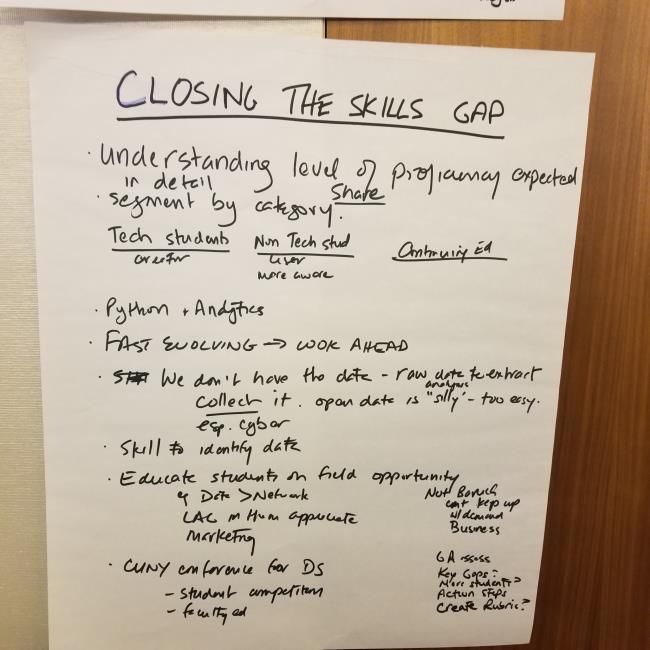 CLOSING THE SKILLS GAP
· Understanding level of proficiency expected
in detail
Share
· Segment by category.
Tech students Non Tech stud Continuing Ed
creator user
more aware
· Python + Analytics
· FAST EVOLVING → LOOK AHEAD
· We don't have the data - raw data to extract
analysis
collect it. open data is "silly" - too easy.
esp. cyber
· Skill to identify data
· Educate students on field opportunity
eg Data > Network
LAC in Hum appreciate
Marketing
Not Baruch
can't keep up
w/demand
Business
· CUNY conference for DS
- student competition
- faculty ed
GA assess
Key Gaps?
More students?
Action Steps
Create Rubric?